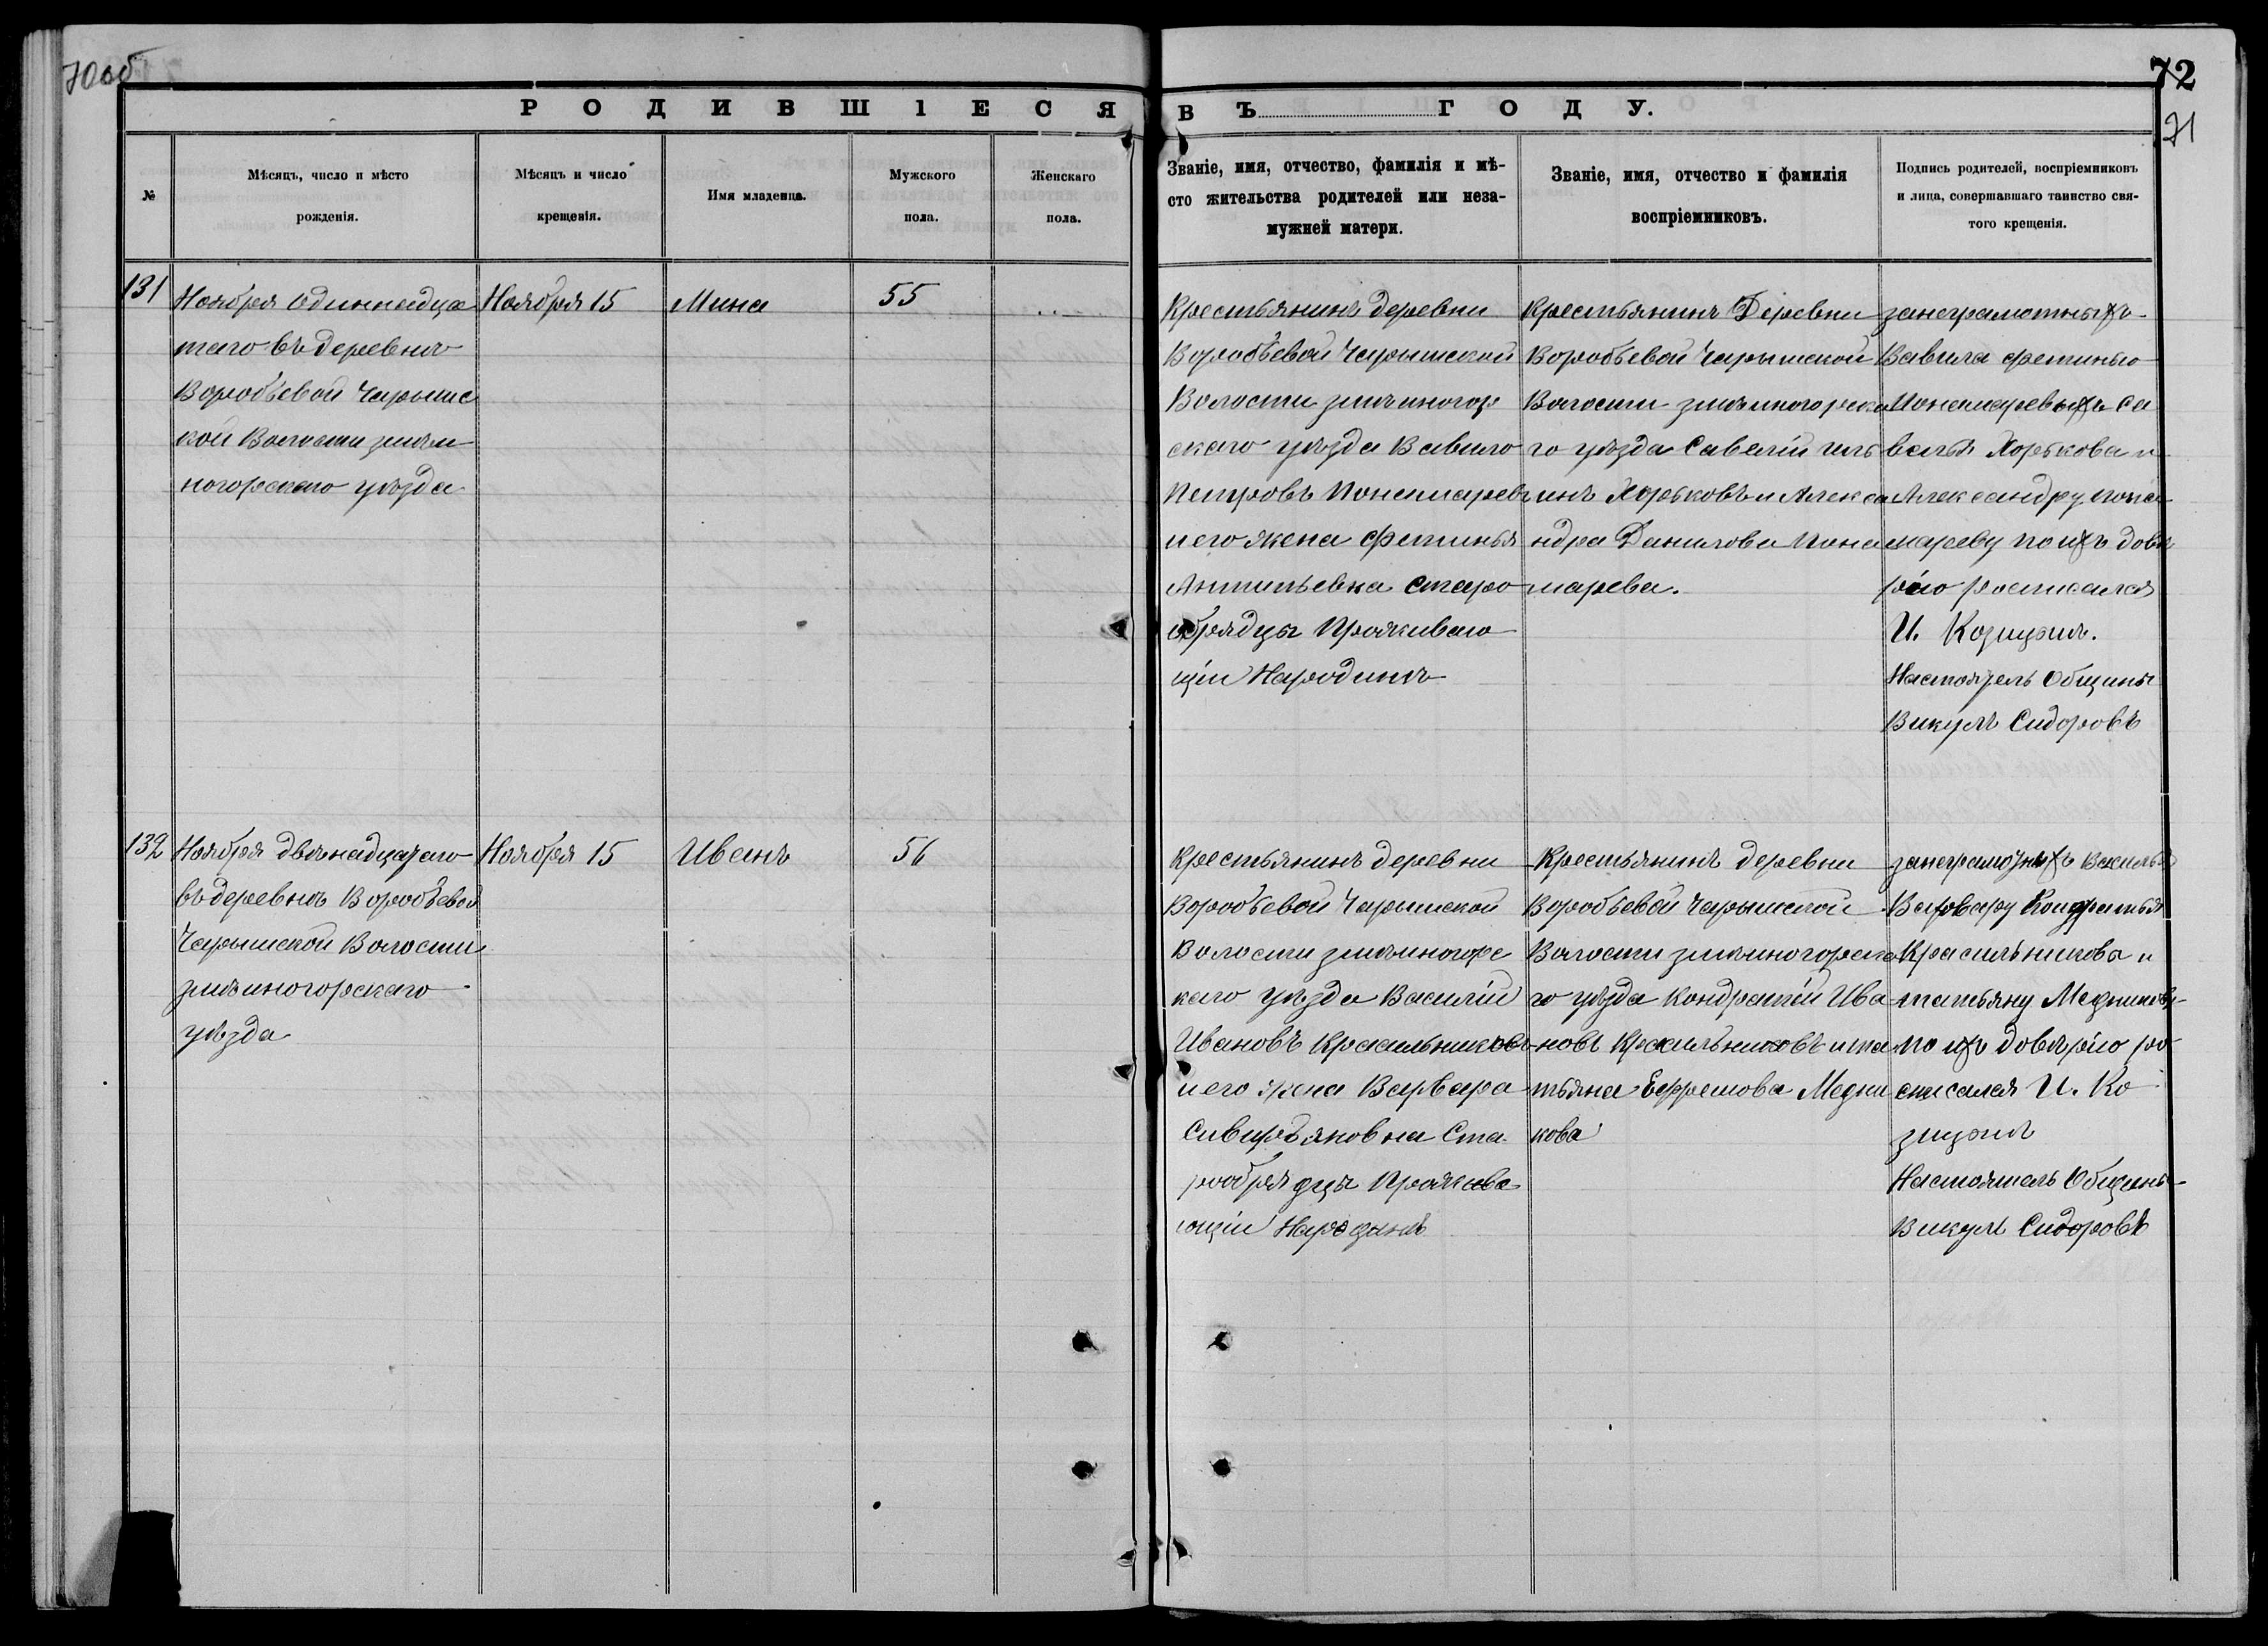 70об
72
71
РОДИВШІЕСЯ ВЪ ГОДУ.
№
Мѣсяцъ, число и мѣсто
рожденія.
Мѣсяцъ и число
крещенія.
Имя младенца.
Мужского
пола.
Женскаго
пола.
Званіе, имя, отчество, фамилія и мѣ-
сто жительства родителей или неза-
мужней матери.
Званіе, имя, отчество и фамилія
воспріемниковъ.
Подпись родителей, воспріемниковъ
и лица, совершавшаго таинство свя-
того крещенія.
131
Ноября одиннадца
таго въ деревнѣ
Воробьевой Чарышс
кой Волости змѣи
ногорскаго уѣзда
Ноября 15
Мина
55
Крестьянинъ деревни
Воробьевой Чарышской
Волости змѣиногор
скаго уѣзда Вавило
Петровъ Понамаревъ
и его жена Фетинья
Антипьевна старо
обрядцы Проживаю
щіи Народинѣ
Крестьянинъ Деревни
Воробьевой Чарышской
Волости змѣиногорска
го уѣзда Савелій Иль
инъ Хорьковъ и Алекса
ндра Данилова Пона
марева.
занеграмотныхъ
Вавила Фетинью
Понамаревыхъ Са
велья Хорькова и
Александру пона
мареву по ихъ довѣ
рію росписался
И. Козицынъ.
Настоятель Общины
Викулъ Сидоровъ
132
Ноября двѣнадцатаго
въ деревнѣ Воробьевой
Чарышской Волости
змѣиногорскаго
уѣзда
Ноября 15
Иванъ
56
Крестьянинъ деревни
Воробьевой Чарышской
Волости змѣиногорс
каго уѣзда Василій
Ивановъ Красильниковъ
и его жена Варвара
Свиридяновна Ста
рообрядцы Прожива
ющіи Народинѣ
Крестьянинъ деревни
Воробьевой Чарышской
Волости змѣиногорска
го уѣзда Кондратій Ива
новъ Красильниковъ и та
тьяна Ефремова Медни
кова
занеграмотныхъ Василья
Варвару Кондратья
Красильникова и
татьяну Медникову
по ихъ довѣрію ро
списался И. Ко
зицынъ
Настоятель Общины
Викулъ Сидоровъ